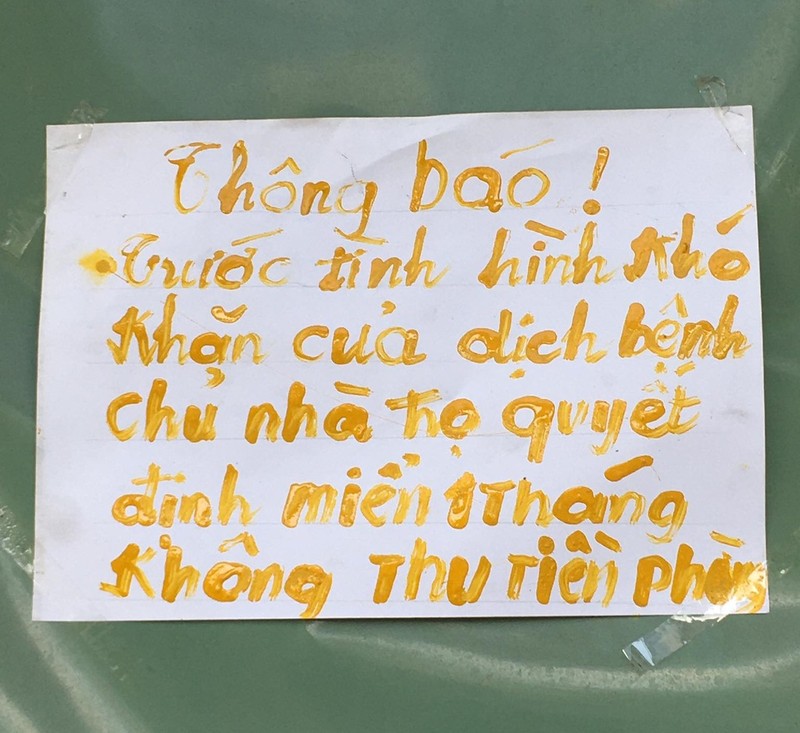 Thông báo !
Trước tình hình Khó
Khăn của dịch bệnh
chủ nhà trọ quyết
định miễn 1 Tháng
Không Thu Tiền phòng